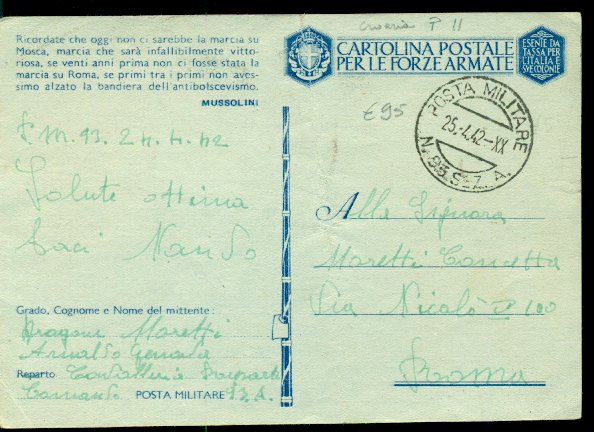 Ricordate che oggi non ci sarebbe la marcia su
Mosca, marcia che sarà infallibilmente vitto-
riosa, se venti anni prima non ci fosse stata la
marcia su Roma, se primi tra i primi non aves-
simo alzato la bandiera dell'antibolscevismo.
MUSSOLINI
P.M. 93. 24.4.42
Salute ottima
Baci Nando
Grado, Cognome e Nome del mittente:
Moretti
Arnaldo
Reparto
Comando POSTA MILITARE 93 A.
Croazia P 11
CARTOLINA POSTALE
PER LE FORZE ARMATE
ESENTE DA
TASSA PER
L'ITALIA E
SVE COLONIE
€95
POSTA MILITARE
25.4.42-XX
N. 93 SEZ. A.
Alla Signora
Moretti Concetta
Via Nicolò V 100
Roma